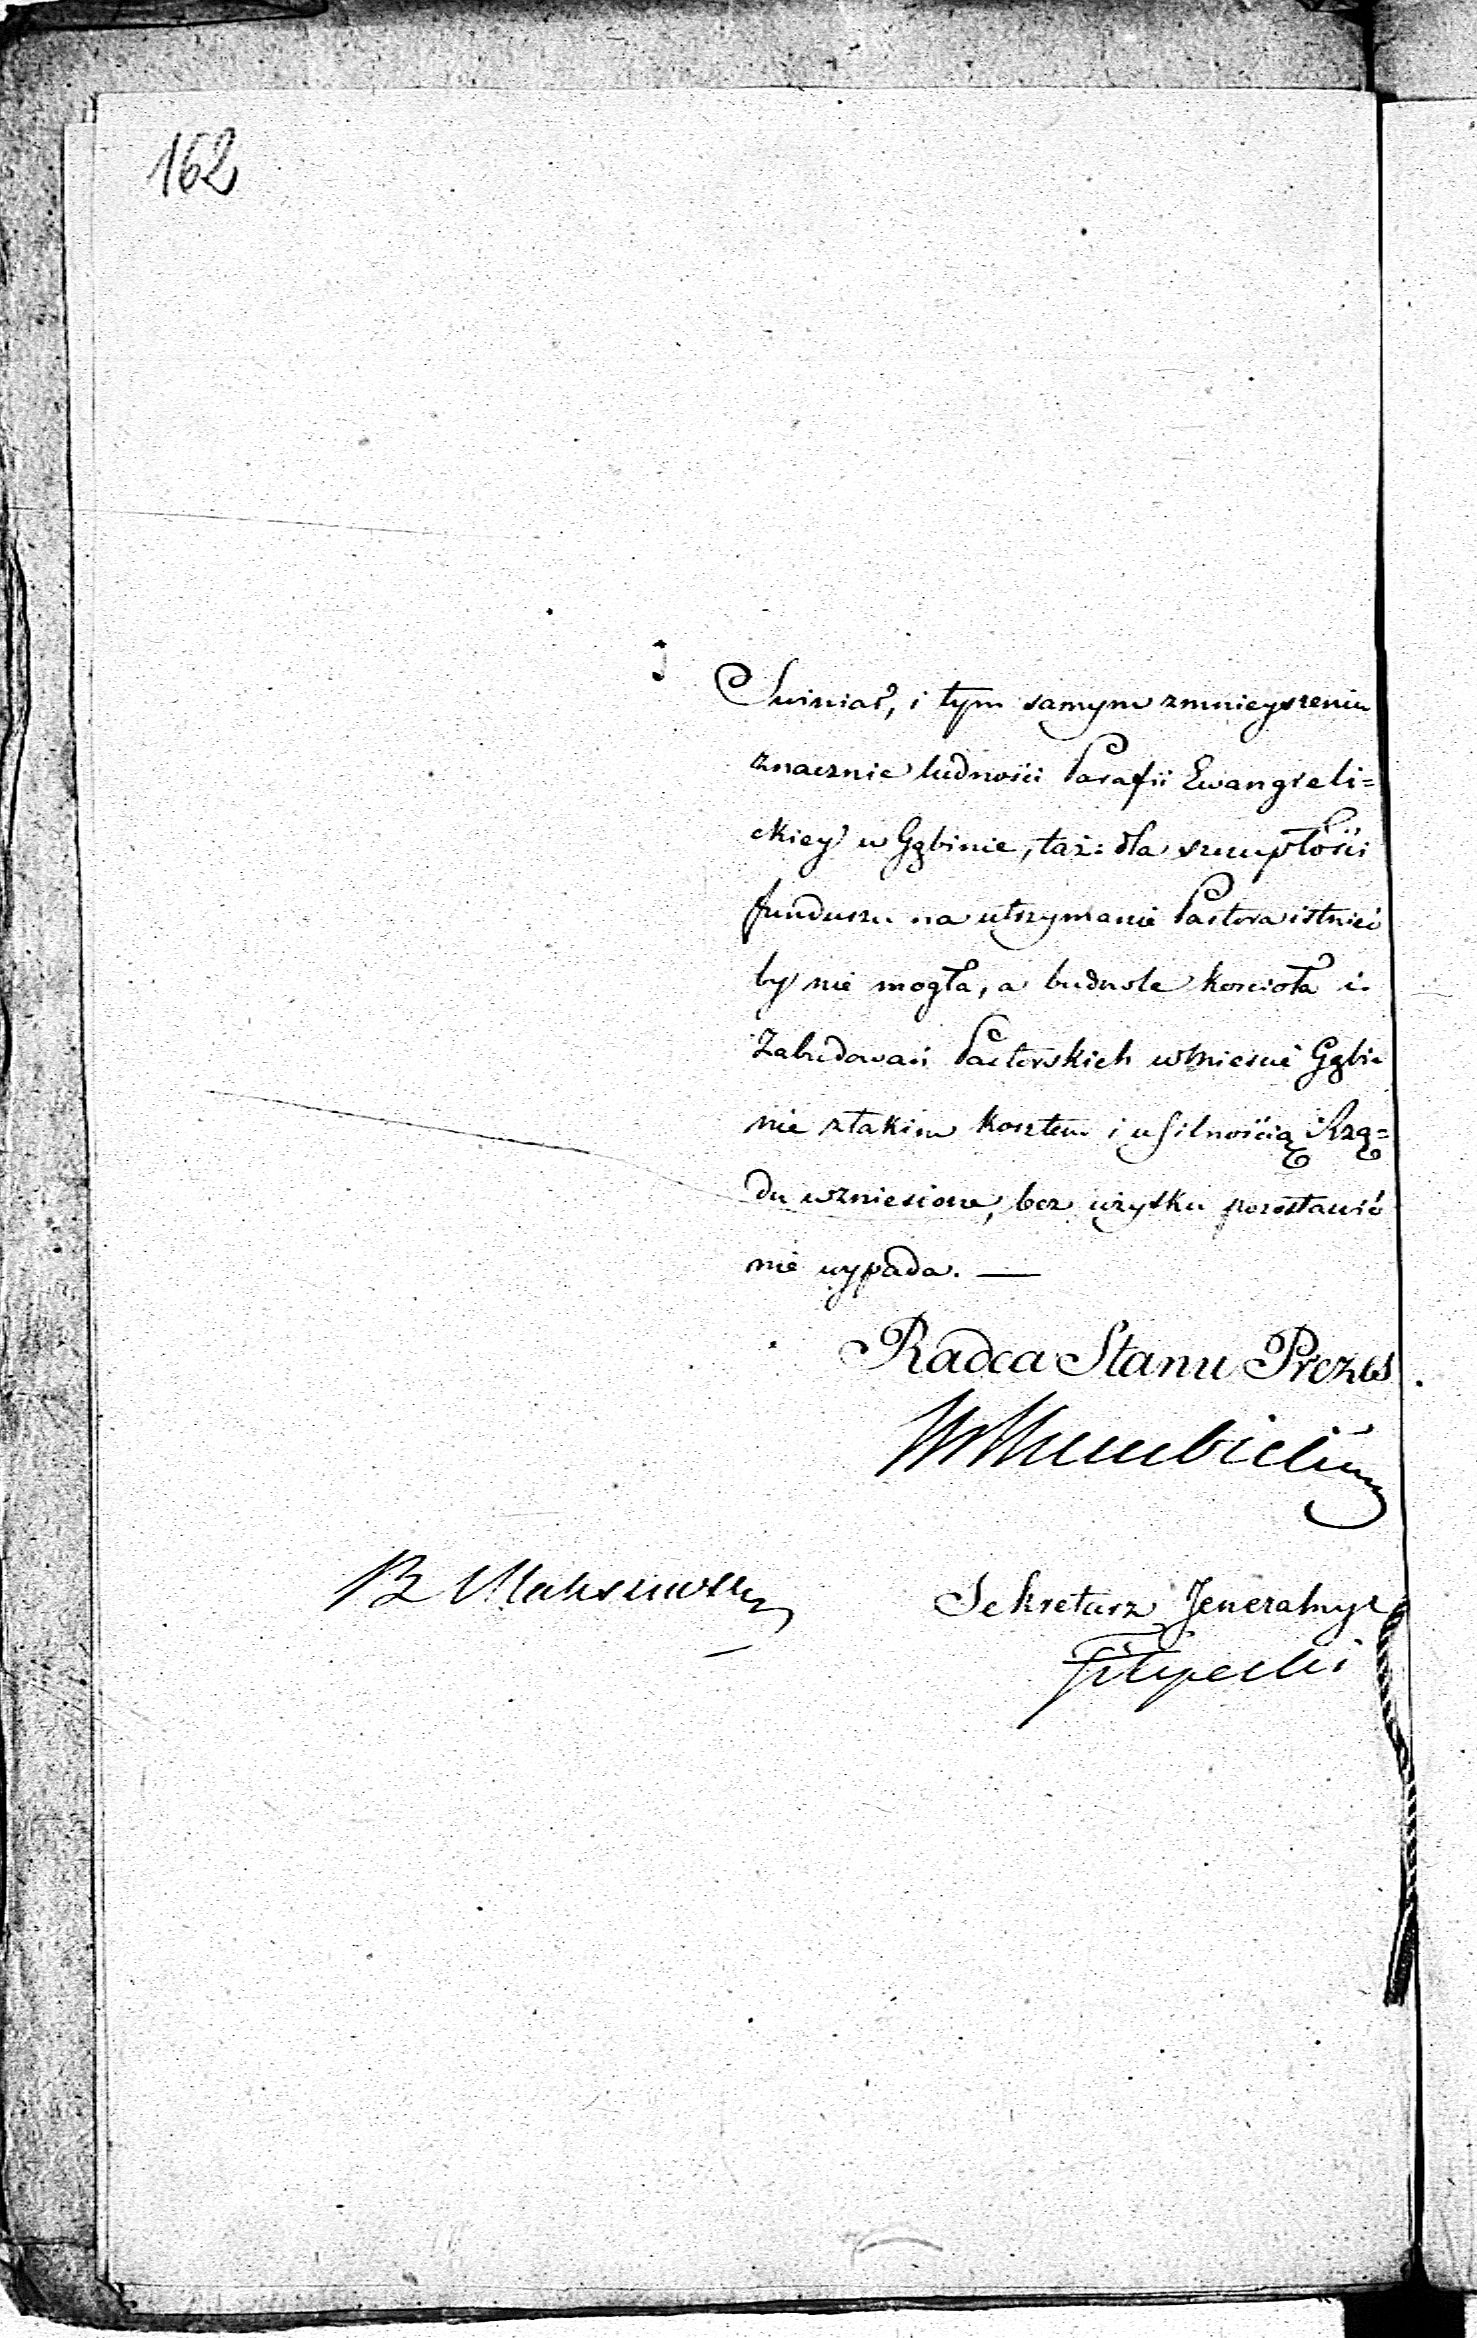 162
Swiniar, i tym samym zmnieyszeniu
znacznie ludności Parafii Ewangieli=
ckiey w Gąbinie, taż dla szczupłości
funduszu na utrzymanie Pastora istnieć
by nie mogła, a budowle kościoła i
Zabudowań Pastorskich w Mieście Gąbi
nie z takim kosztem i usilnością Rzą=
du wzniesione, bez użytku pozostawić
nie wypada. —
Radca Stanu Prezes
Sekretarz Jeneralny
Filipecki